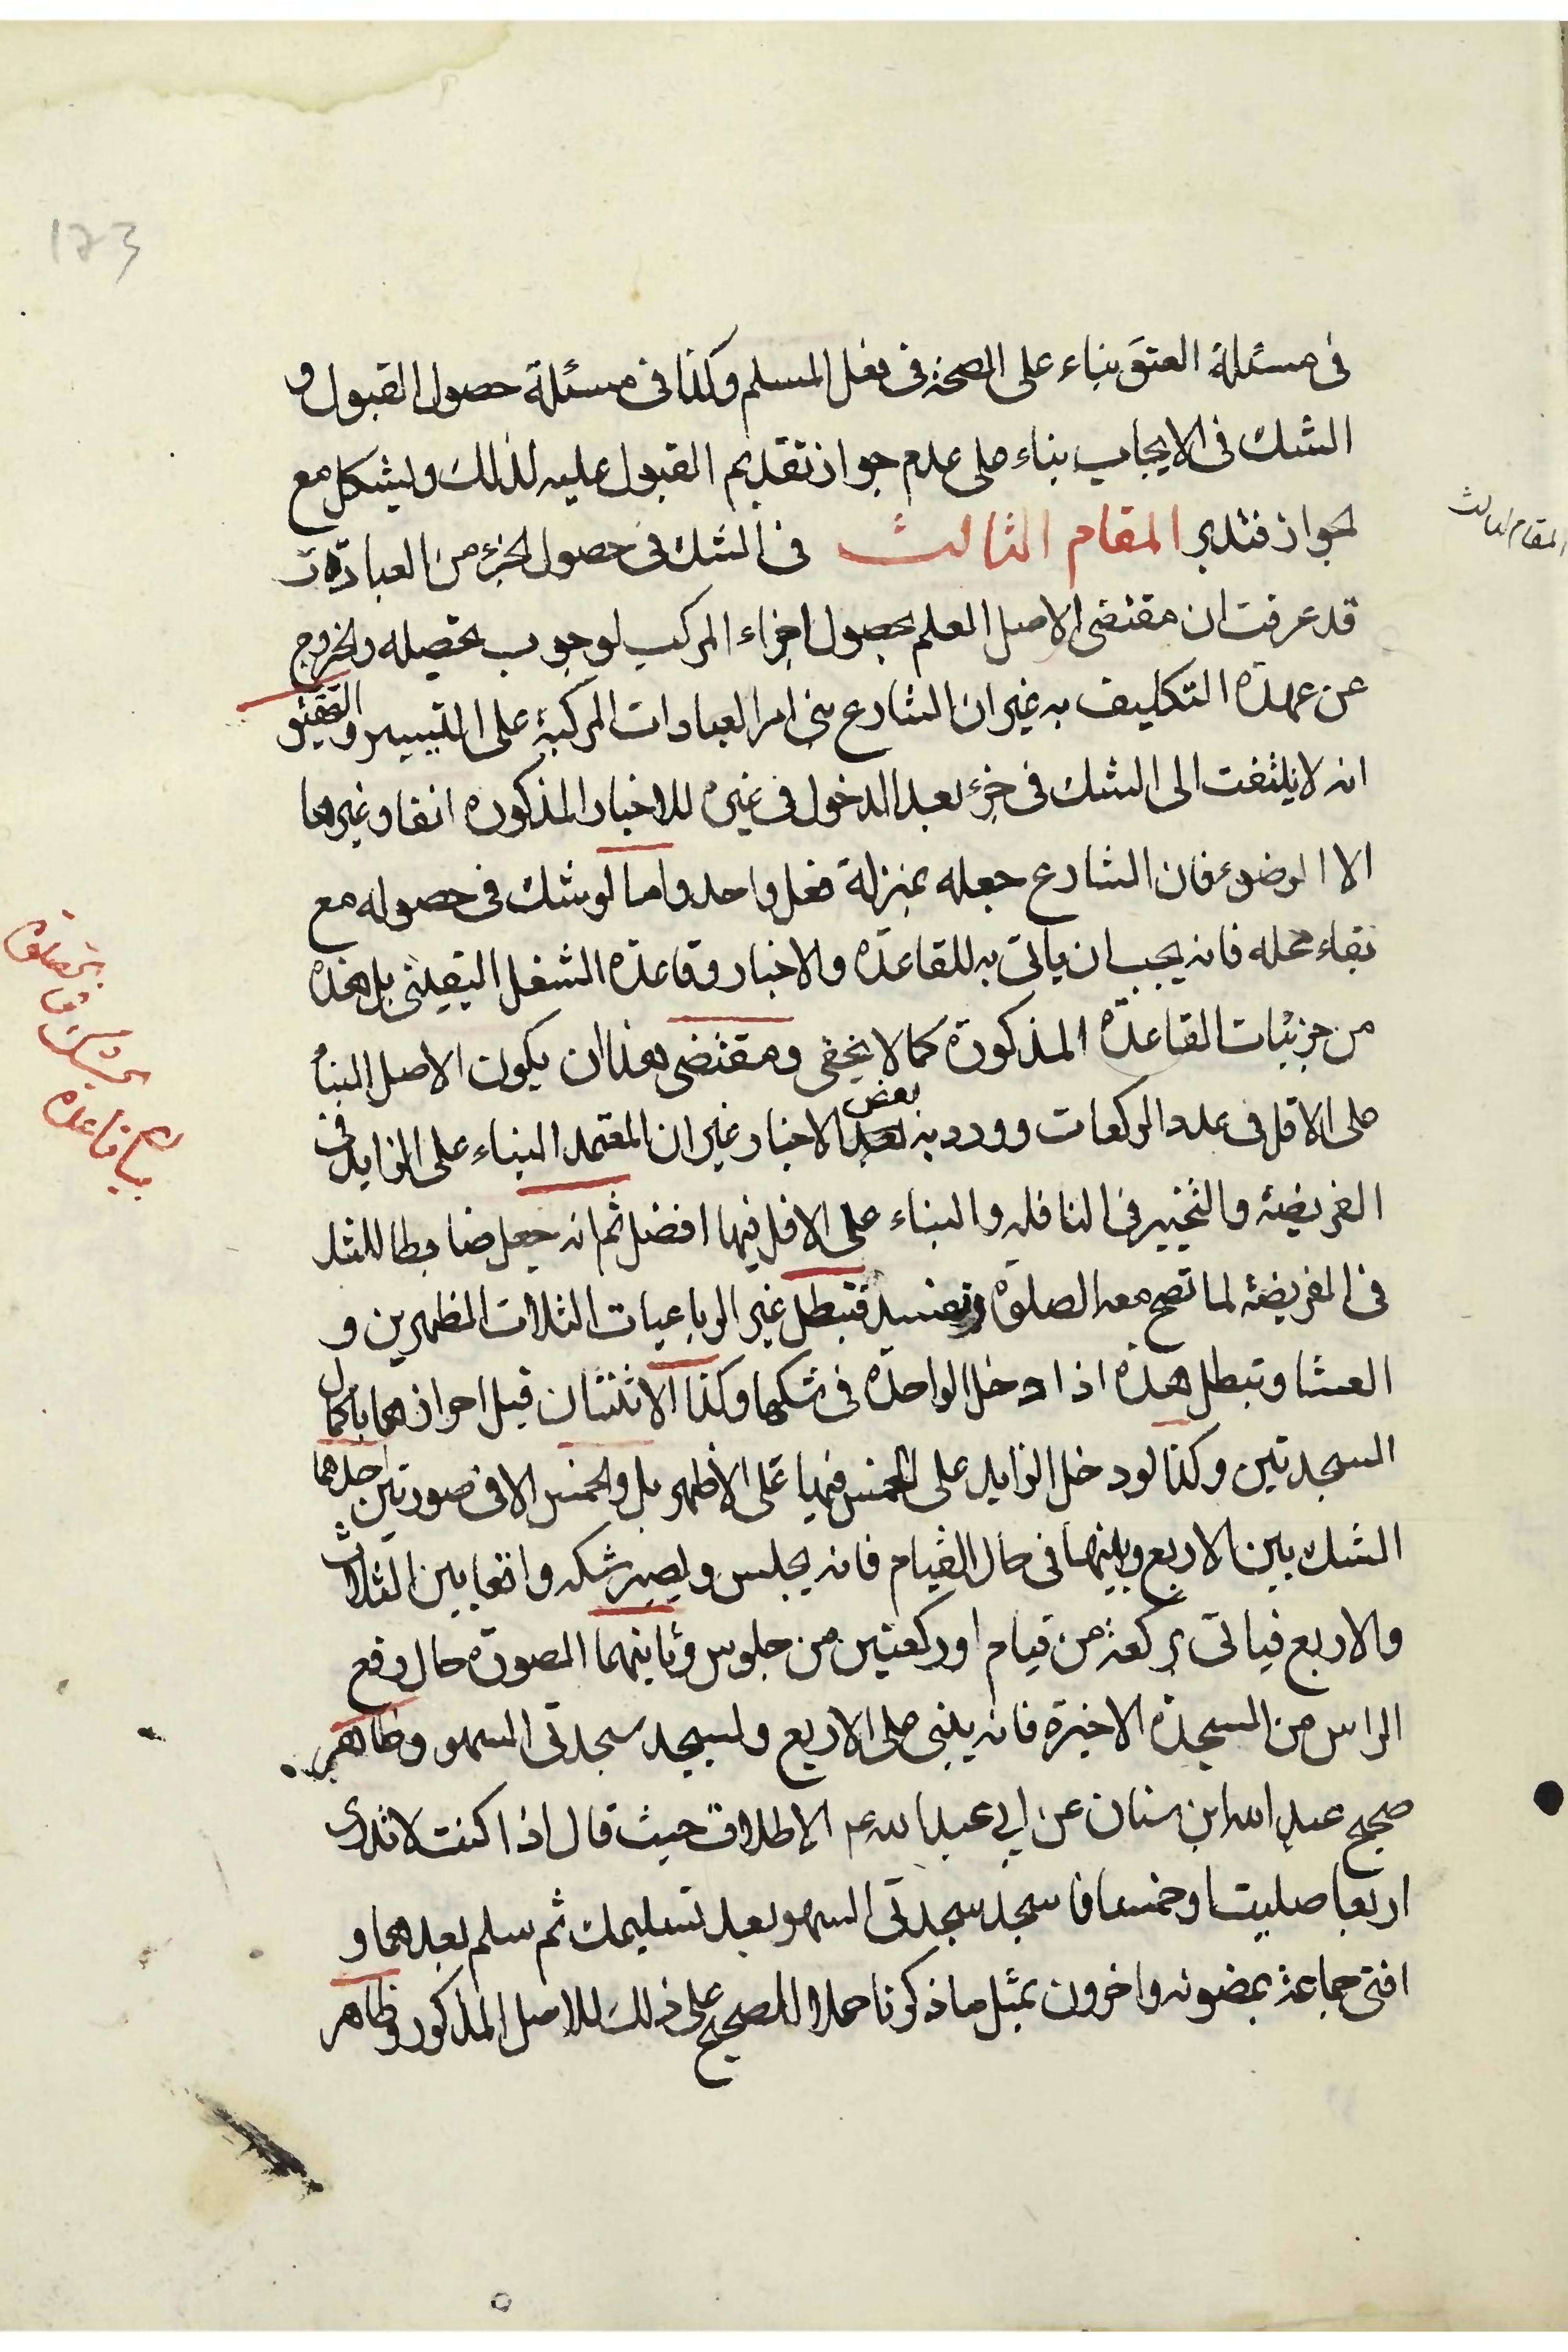 173
في مسئلة العتق بناء على الصحة في فعل المسلم وكذا في مسئلة حصول القبول و
الشك في الايجاب بناء على عدم جواز تقديم القبول عليه لذلك ويشكل مع
الجواز فتدبر المقام الثالث في الشك في حصول الجزء من العبادات
المقام الثالث
قد عرفت ان مقتضى الاصل العلم بحصول اجزاء المركب لوجوب تحصيله والخروج
عن عهدة التكليف به غير ان الشارع بنى امر العبادات المركبة على التيسير والتحقيق
انه لا يلتفت الى الشك في جزء بعد الدخول في غيره للاخبار المذكورة انفا وغيرها
الا الوضوء فان الشارع جعله بمنزلة فعل واحد واما لو شك في حصوله مع
بقاء محله فانه يجب ان ياتى به للقاعدة والاخبار وقاعدة الشغل اليقيني بل هذه
من جزئيات القاعدة المذكورة كما لا يخفى ومقتضى هذا ان يكون الاصل البناء
على الاقل في عدد الركعات وورد به بعض الاخبار غير ان المعتمد البناء على الزايد في
بيان قاعدة
الفريضة والتخيير في النافلة والبناء على الاقل فيها افضل ثم انه جعل ضابطا للشك
في الفريضة لما تصح معه الصلوة وتفسد فتبطل غير الرباعيات الثلاث الظهرين و
العشا وتبطل هذه اذا دخل الواحدة في شكها وكذا الاثنتان قبل احرازهما باكمال
السجدتين وكذا لو دخل الزايد على الخمس فيها على الاظهر بل والخمس الا في صورتين احدهما
الشك بين الاربع وبينها في حال القيام فانه يجلس ويصير شكه واقعا بين الثلاث
والاربع فياتى بركعة من قيام او ركعتين من جلوس وثانيهما الصورة حال رفع
الراس من السجدة الاخيرة فانه يبنى على الاربع ويسجد سجدتى السهو وظاهر
صحيح عبد الله ابن سنان عن ابي عبد الله عم الاطلاق حيث قال اذا كنت لا تدرى
اربعا صليت او خمسا فاسجد سجدتى السهو بعد تسليمك ثم سلم بعدهما و
افتى جماعة بمضمونه واخرون بمثل ما ذكرنا حملا للصحيح على ذلك للاصل المذكور وظاهر